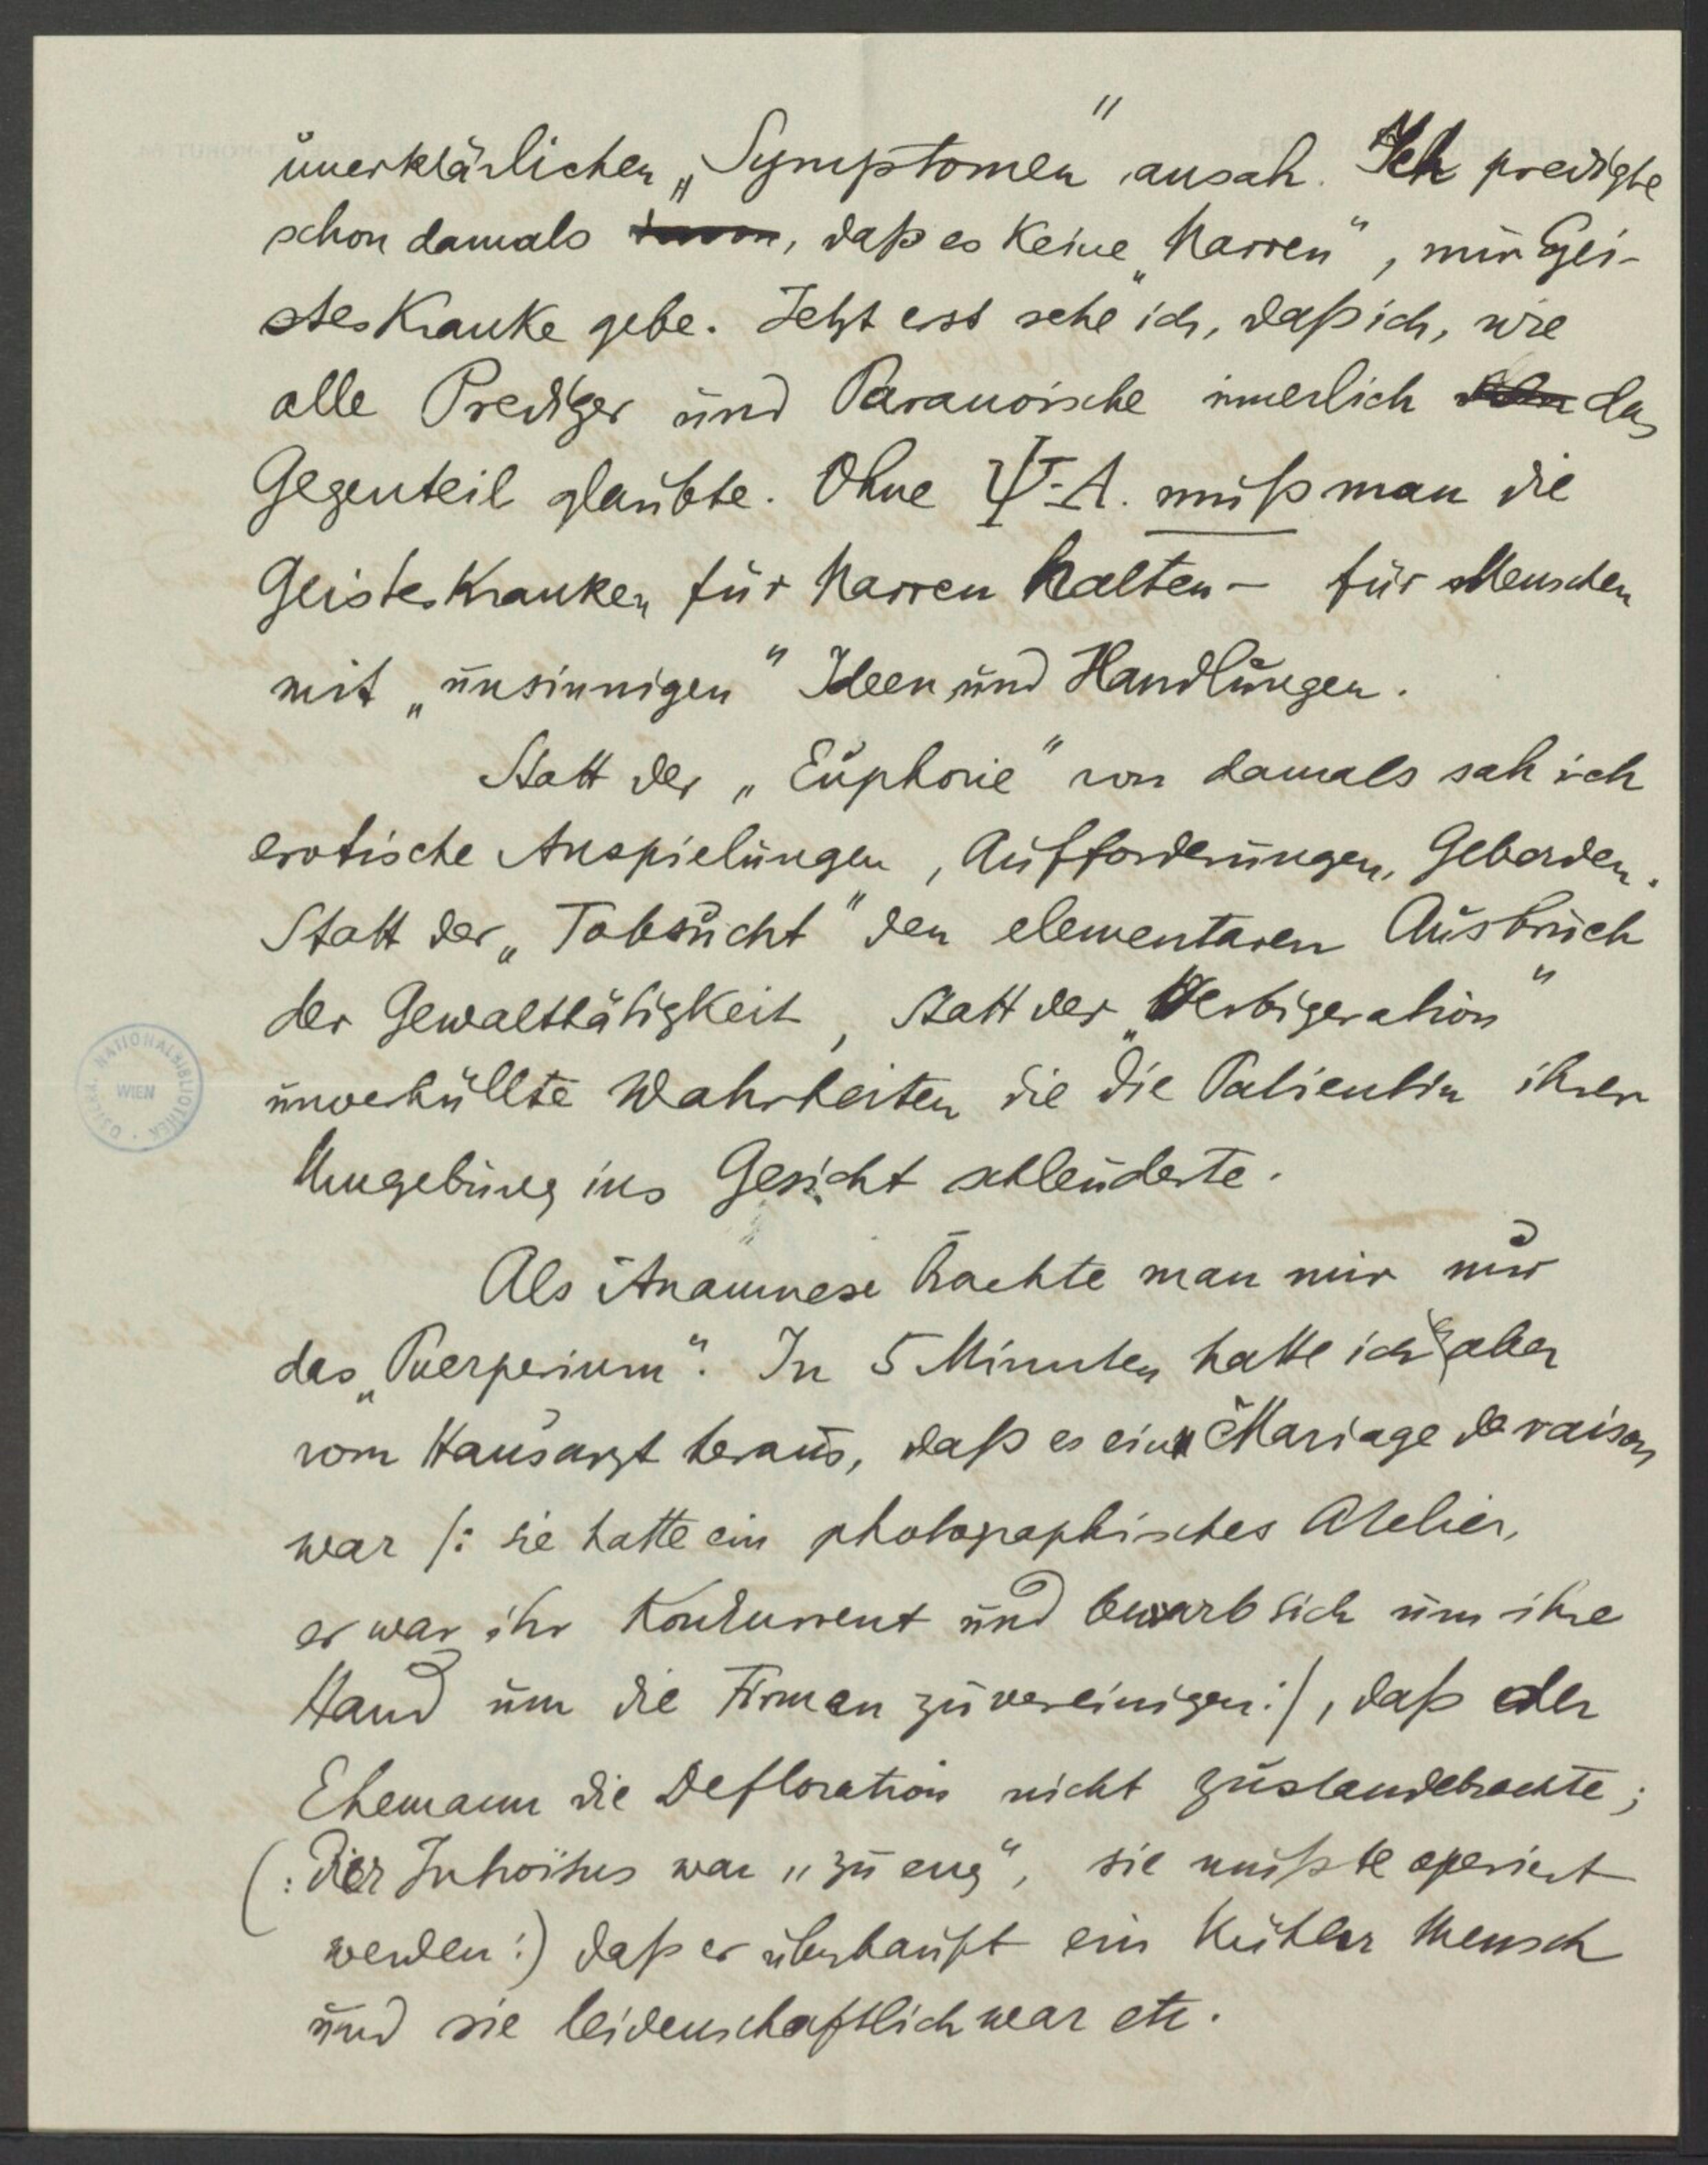 unerklärlichen „Symptomen" ansah. Ich predigte
schon damals davon, daß es keine „Narren", nur Gei-
steskranke gebe. Jetzt erst sehe ich, daß ich, wie
alle Prediger und Paranoische innerlich das
Gegenteil glaubte. Ohne Ψ-A. muß man die
Geisteskranken für Narren halten – für Menschen
mit „unsinnigen" Ideen und Handlungen.
Statt der „Euphorie" von damals sah ich
erotische Anspielungen, Aufforderungen, Geberden.
Statt der „Tobsucht" den elementaren Ausbruch
der Gewalttätigkeit, statt der „Verbigeration"
unverhüllte Wahrheiten die die Patientin ihrer
Umgebung ins Gesicht schleuderte.
Als Anamnese brachte man mir nur
das „Puerperium". In 5 Minuten hatte ich aber
vom Hausarzt heraus, daß es eine Mariage de raison
war /: sie hatte ein photographisches Atelier,
er war ihr Konkurrent und bewarb sich um ihre
Hand um die Firmen zu vereinigen :/, daß der
Ehemann die Defloration nicht zustandebrachte;
(: Der Introitus war „zu eng", sie mußte operiert
werden :) daß er überhaupt ein kühler Mensch
und sie leidenschaftlich war etc.
ÖSTERR. NATIONALBIBLIOTHEK
WIEN